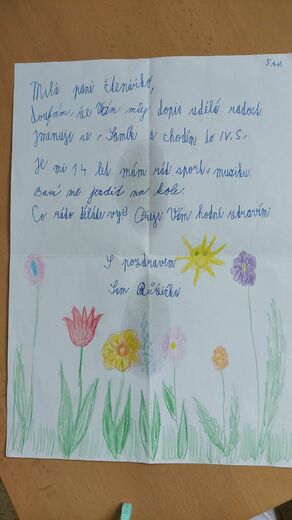 SAM
Milá paní čtenářko,
doufám, že Vám můj dopis udělá radost.
Jmenuji se, Samík a chodím do IV.S.
Je mi 14 let mám rád sport, muziku.
Baví mě jezdit na kole.
Co ráda děláte vy? Přeji Vám hodně zdravím
S pozdravem
Sam Růžička